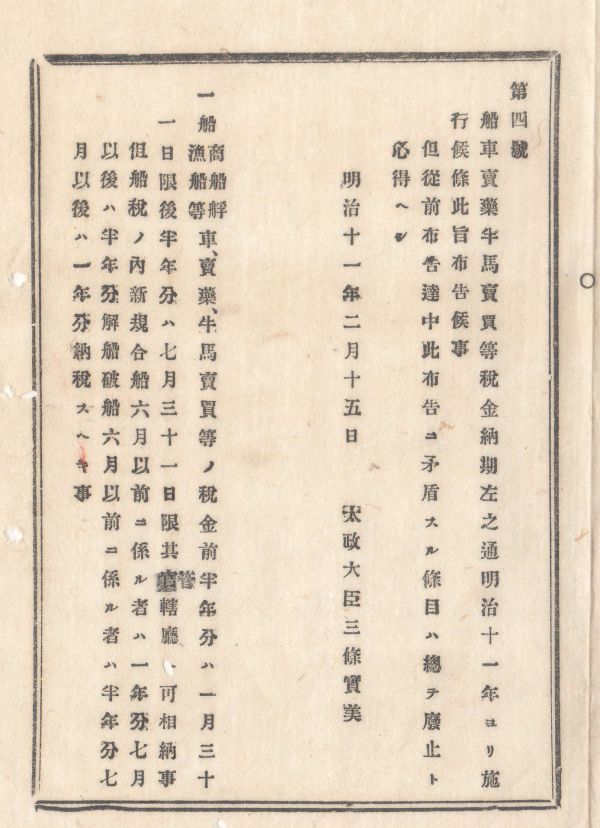 第四號
船車賣藥牛馬賣買等税金納期左之通明治十一年ヨリ施
行候條此旨布告候事
但從前布告達中此布告ニ矛盾スル條目ハ總テ廢止ト
必得ヘシ
明治十一年二月十五日 太政大臣三條實美
一船商船艀漁船等車、賣藥、牛馬賣買等ノ税金前半年分ハ一月三十
一日限後半年分ハ七月三十一日限其管轄廳ヘ可相納事
但船税ノ内新規合船六月以前ニ係ル者ハ一年分七月
以後ハ半年分解船破船六月以前ニ係ル者ハ半年分七
月以後ハ一年分納税スヘキ事